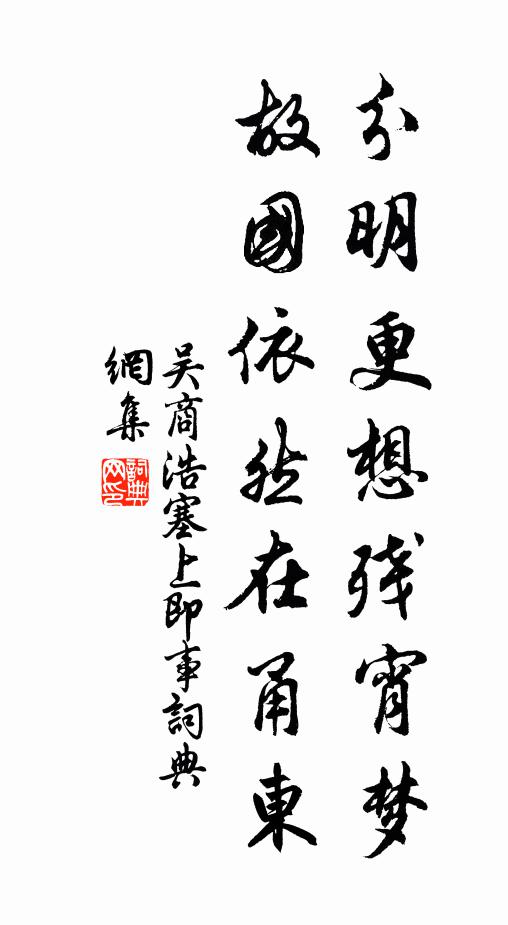 分明更想残宵梦
故國依然在甬東
吴商浩塞上即事詞典
網集
詞典網印